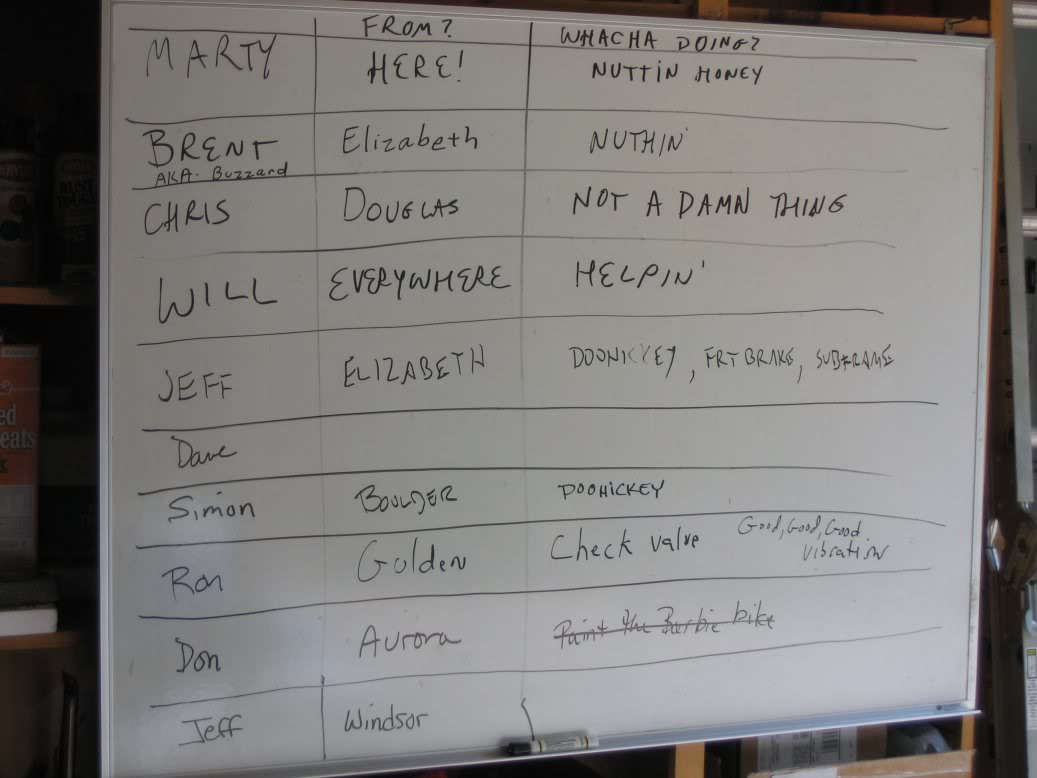 FROM? WHACHA DOING?
MARTY HERE! NUTTIN HONEY
BRENT Elizabeth NUTHIN'
AKA. Buzzard
CHRIS DOUGLAS NOT A DAMN THING
WILL EVERYWHERE HELPIN'
JEFF ELIZABETH DOOHICKEY, FRT BRAKE, SUBFRAME
Dave
Simon BOULDER DOOHICKEY
Ron Golden Check valve Good, Good, Good
vibration
Don Aurora Paint the Barbie bike
Jeff Windsor
ed
eats